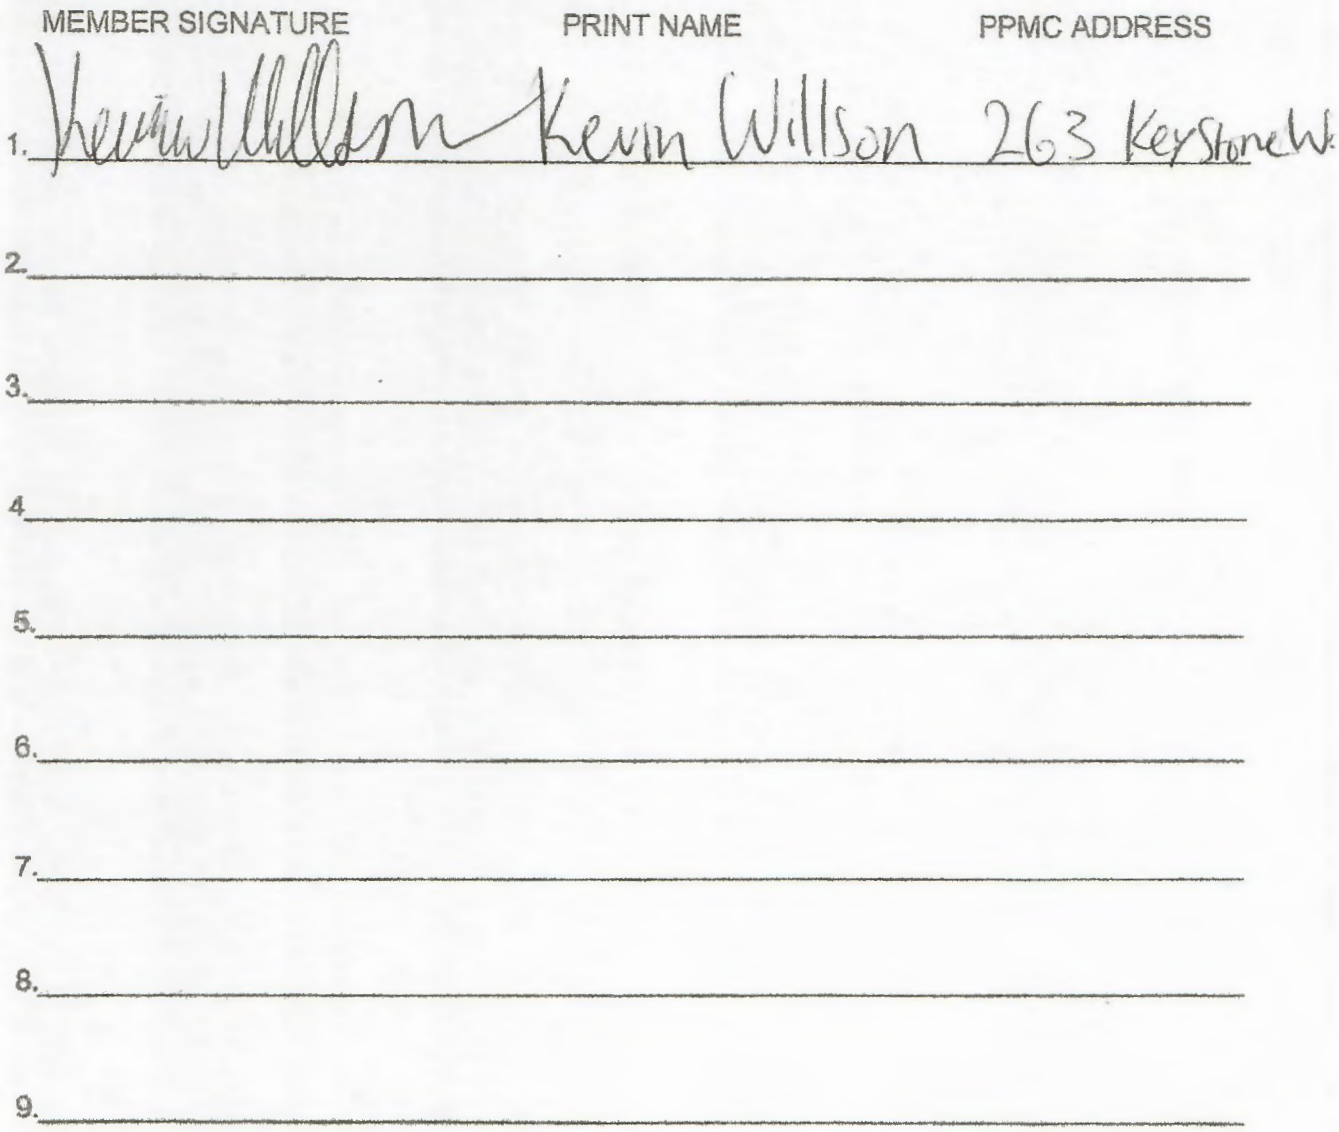 MEMBER SIGNATURE PRINT NAME PPMC ADDRESS
1. Kevin Willson Kevin Willson 263 Keystone W.
2.
3.
4
5.
6.
7.
8.
9.